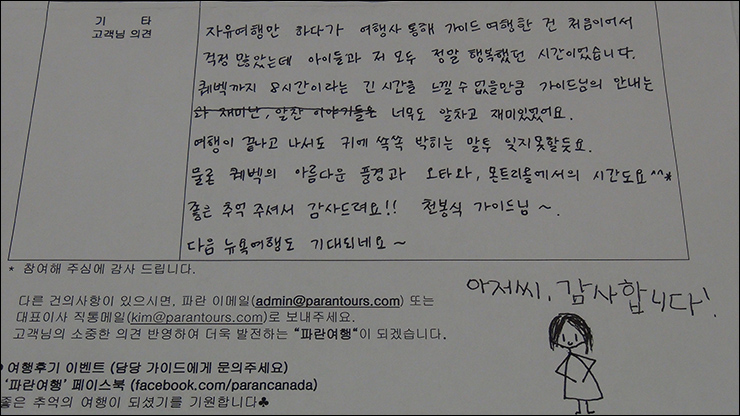 기 타
고객님 의견
자유여행만 하다가 여행사 통해 가이드 여행한 건 처음이어서
걱정 많았는데 아이들과 저 모두 정말 행복했던 시간이었습니다.
퀘벡까지 8시간이라는 긴 시간을 느낄 수 없을만큼 가이드님의 안내는
와 재미난, 알찬 이야기들은 너무도 알차고 재미있었어요.
여행이 끝나고 나서도 귀에 쏙쏙 박히는 말투 잊지못할듯요.
물론 퀘벡의 아름다운 풍경과 오타와, 몬트리올에서의 시간도요^^*
좋은 추억 주셔서 감사드려요!! 천봉식 가이드님 ~.
다음 뉴욕여행도 기대되네요~
* 참여해 주심에 감사 드립니다.
다른 건의사항이 있으시면, 파란 이메일(admin@parantours.com) 또는
대표이사 직통메일(kim@parantours.com)로 보내주세요.
고객님의 소중한 의견 반영하여 더욱 발전하는 "파란여행"이 되겠습니다.
여행후기 이벤트 (담당 가이드에게 문의주세요)
'파란여행' 페이스북 (facebook.com/parancanada)
좋은 추억의 여행이 되셨기를 기원합니다♣
아저씨, 감사합니다!